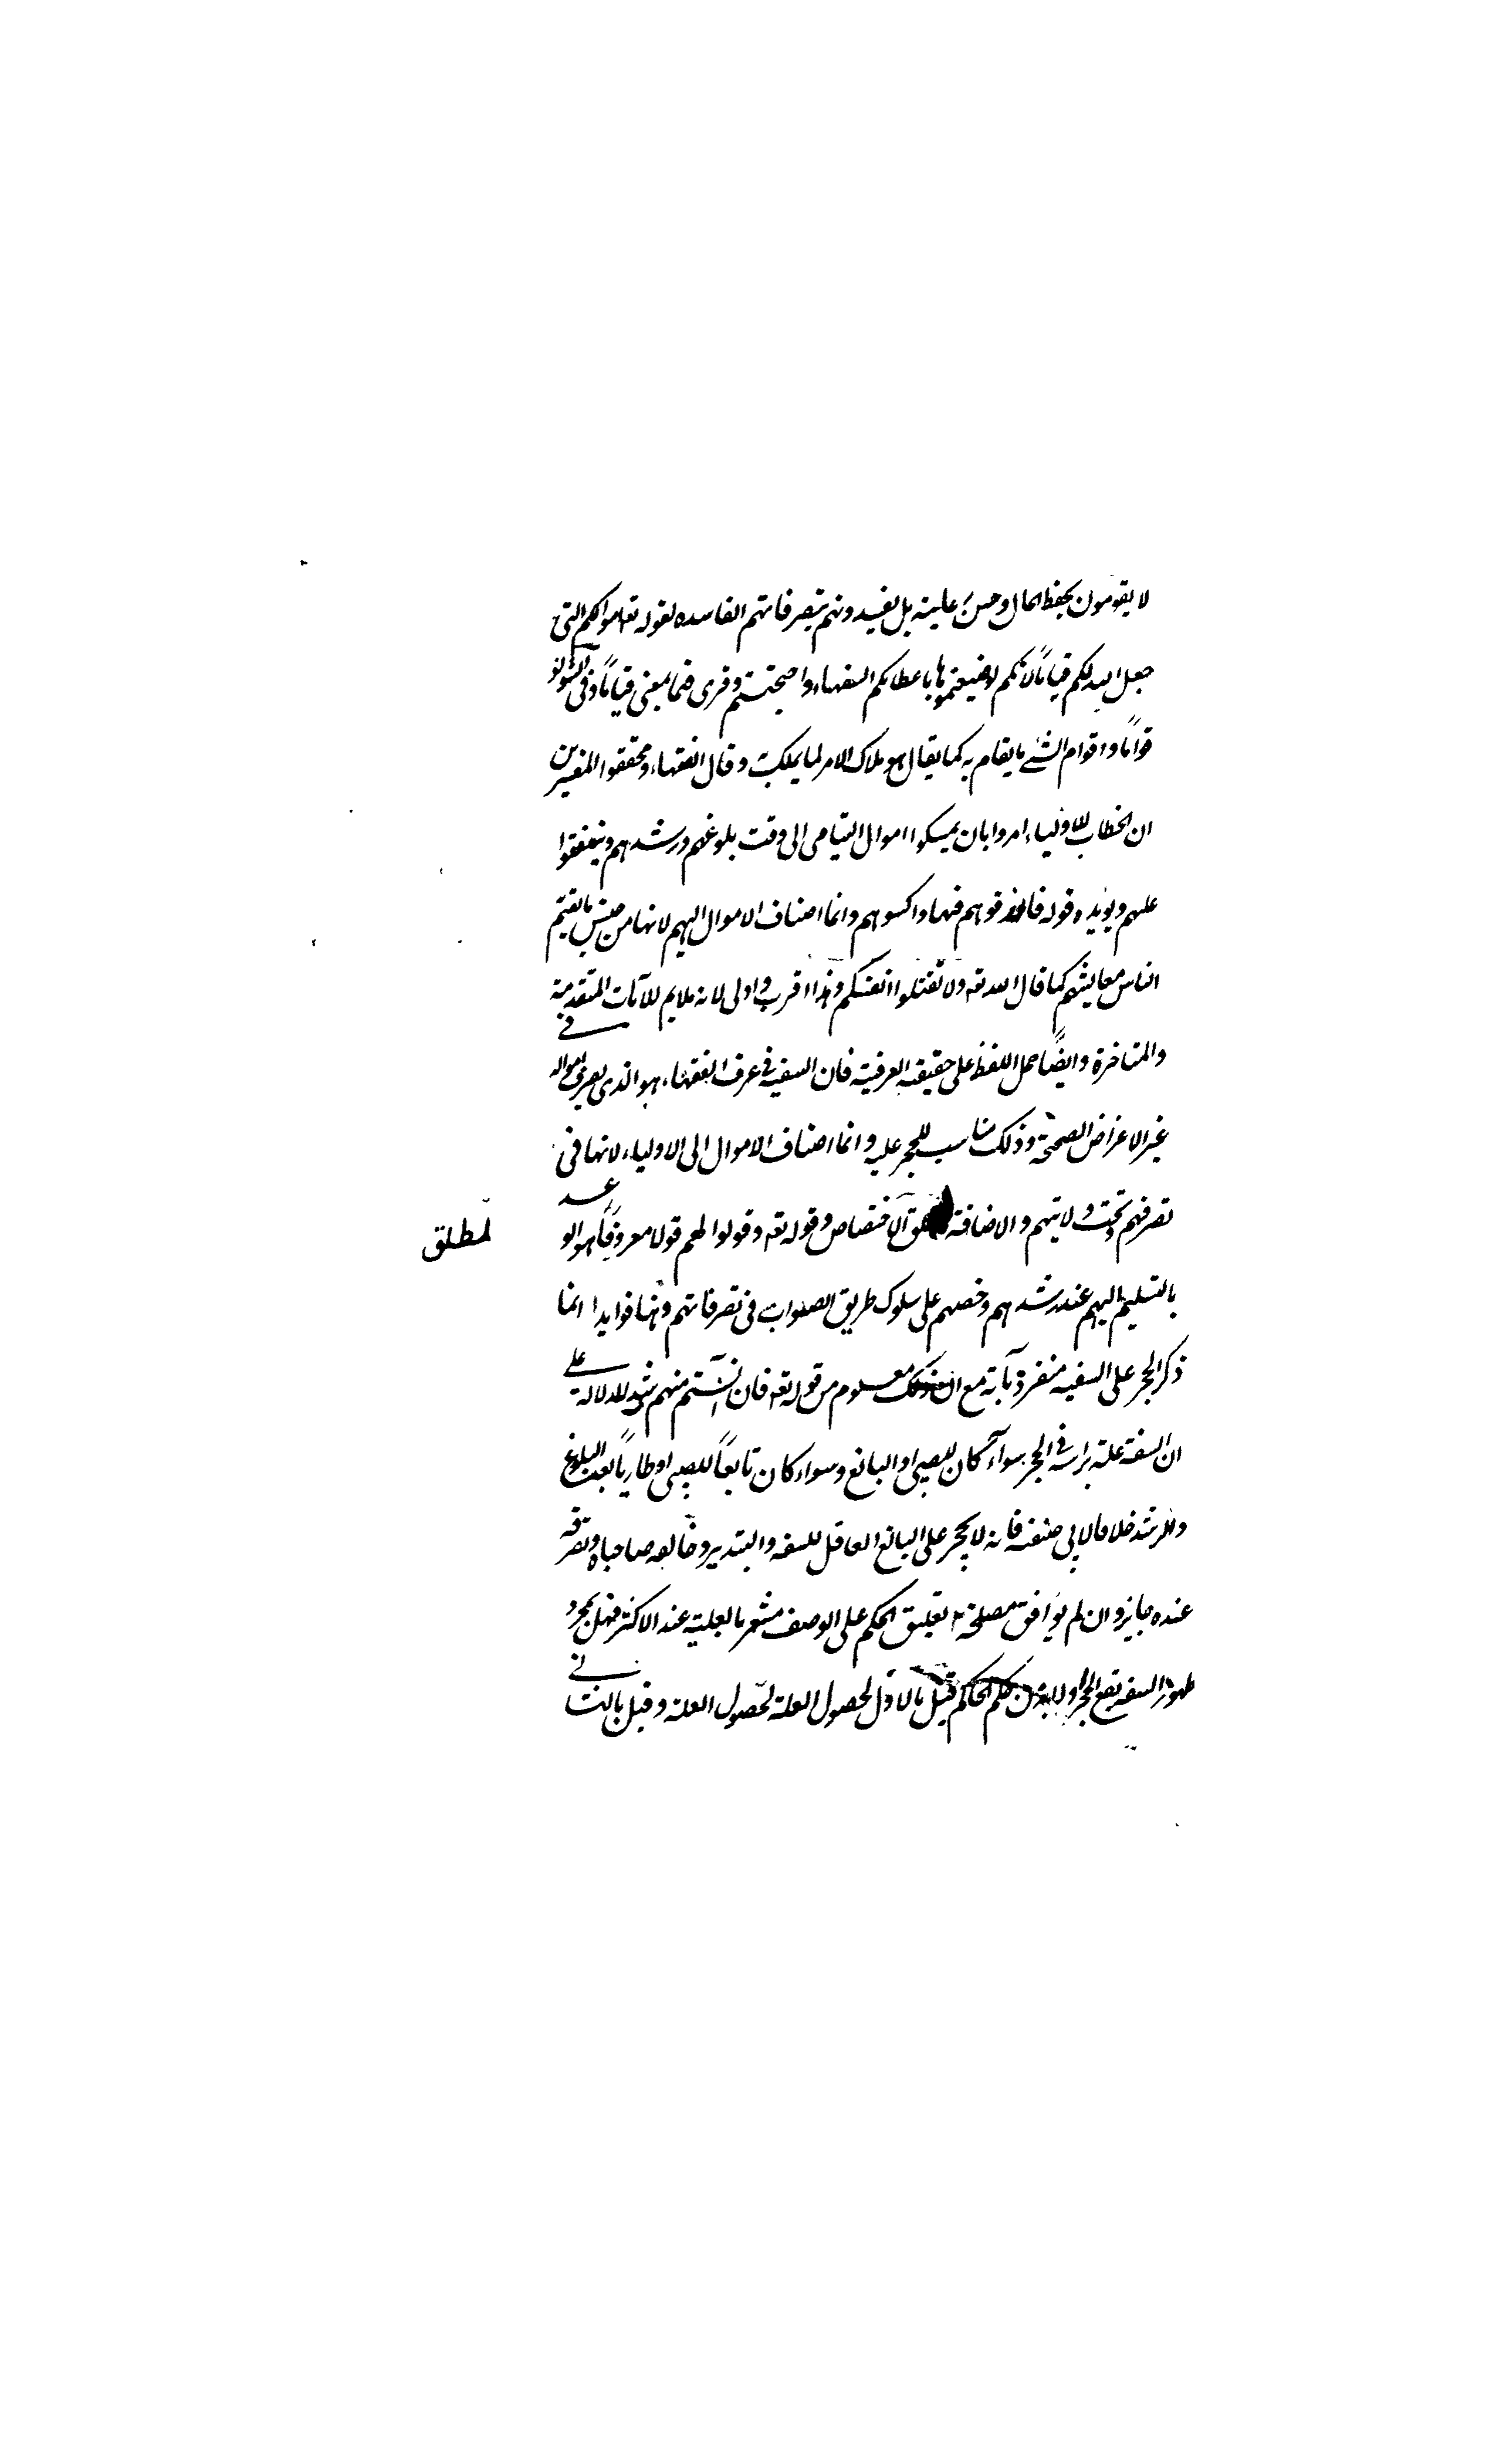 لا يقومون بحفظ المال وحسن علينه بل يفسدونهم بتصرفاتهم الفاسده لقوله تعه اموالكم التى
جعل الله لكم قياماً لانكم لو ضيعتموها باعطائكم السفهاء واحتجتم وقرى قيما بمعنى قياماً وفى الشواذ
قواماً وقوام الشئ ما يقام به كما يقال هو ملاك الامر لما يملك به وقال الفقهاء ومحققوا المفسرين
ان الخطاب للاولياء امروا بان يمسكوا اموال اليتامى الى وقت بلوغهم ورشدهم وينفقوا
عليهم ويؤيده قوله فارزقوهم فيها واكسوهم وانما اضاف الاموال اليهم لانها من جنس ما يقيم
الناس معايشهم كما قال الله تعه ولا تقتلوا انفسكم وهذا اقرب واولى لانه ملايم للآيات المتقدمة
والمتاخرة وايضاً حمل اللفظ على حقيقته العرفية فان السفيه فى عرف الفقهاء هو الذى يصرف امواله فى
غير الاغراض الصحيحة وذلك مناسب للحجر عليه وانما اضاف الاموال الى الاولياء لانها فى
تصرفهم وتحت ولايتهم والاضافة لمطلق الاختصاص وقوله تعه وقولوا لهم قولا معروفاً هو الوعد
لمطلق
بالتسليم اليهم عند رشدهم وحضهم على سلوك طريق الصواب فى تصرفاتهم وهنا فوايد ا انما
ذكر الحجر على السفيه منفرداً بآية مع ان ذلك معلوم من قوله تعه فان آنستم منهم رشداً للدلالة على
ان السفه علة براسه فى الحجر سواء كان للصبى او البالغ وسواء كان تابعاً للصبى او طارياً بعد البلوغ
والرشد خلافا لابى حنيفة فانه لا يحجر على البالغ العاقل للسفه والتبذير وخالفه صاحباه وتصرفه
عنده جايز وان لم يوافق مصلحة ٢ تعليق الحكم على الوصف مشعر بالعلية عند الاكثر فهل بمجرد
ظهور السفه يقع الحجر او لابد من حكم الحاكم قيل بالاول لحصول العلة لحصول العلة وقيل بالثانى